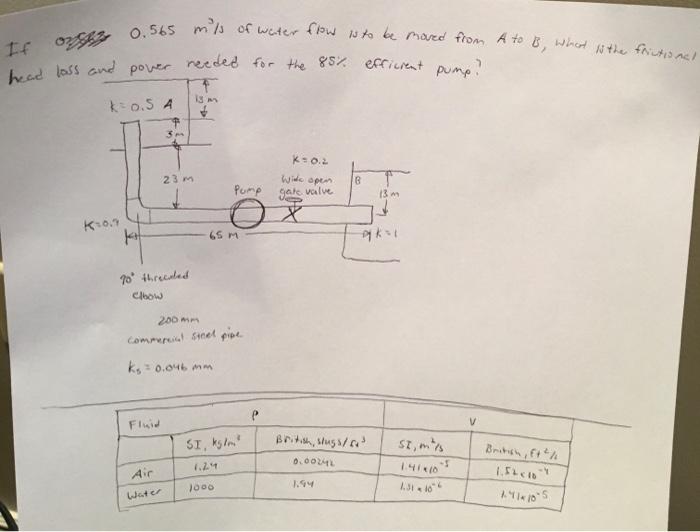 If 0.565 m³/s of water flow is to be moved from A to B, what is the frictional
head loss and power needed for the 85% efficient pump?
K=0.5 A
13 m
3m
23 m
K=0.2
Wide open
gate valve
Pump
B
13 m
K=0.9
65 M
K=1
90° threaded
elbow
200mm
commercial steel pipe
ks = 0.046 mm
Fluid ρ V
SI, kg/m³ British, slugs/ft³ SI, m²/s British, ft²/s
Air 1.24 0.00242 1.41x10⁻⁵ 1.52x10⁻⁴
Water 1000 1.94 1.31x10⁻⁶ 1.41x10⁻⁵